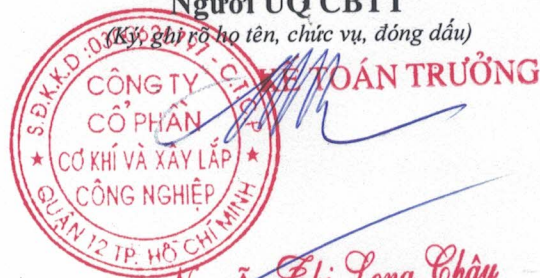 Người UQ CBTT
(Ký, ghi rõ họ tên, chức vụ, đóng dấu)
KẾ TOÁN TRƯỞNG
CÔNG TY
CỔ PHẦN
CƠ KHÍ VÀ XÂY LẮP
CÔNG NGHIỆP
QUẬN 12 TP. HỒ CHÍ MINH
Thị Long Châu